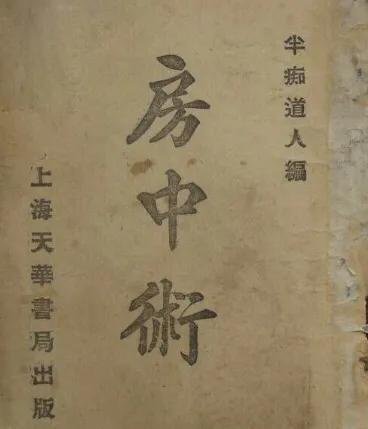 半痴道人編
房中術
上海天華書局出版